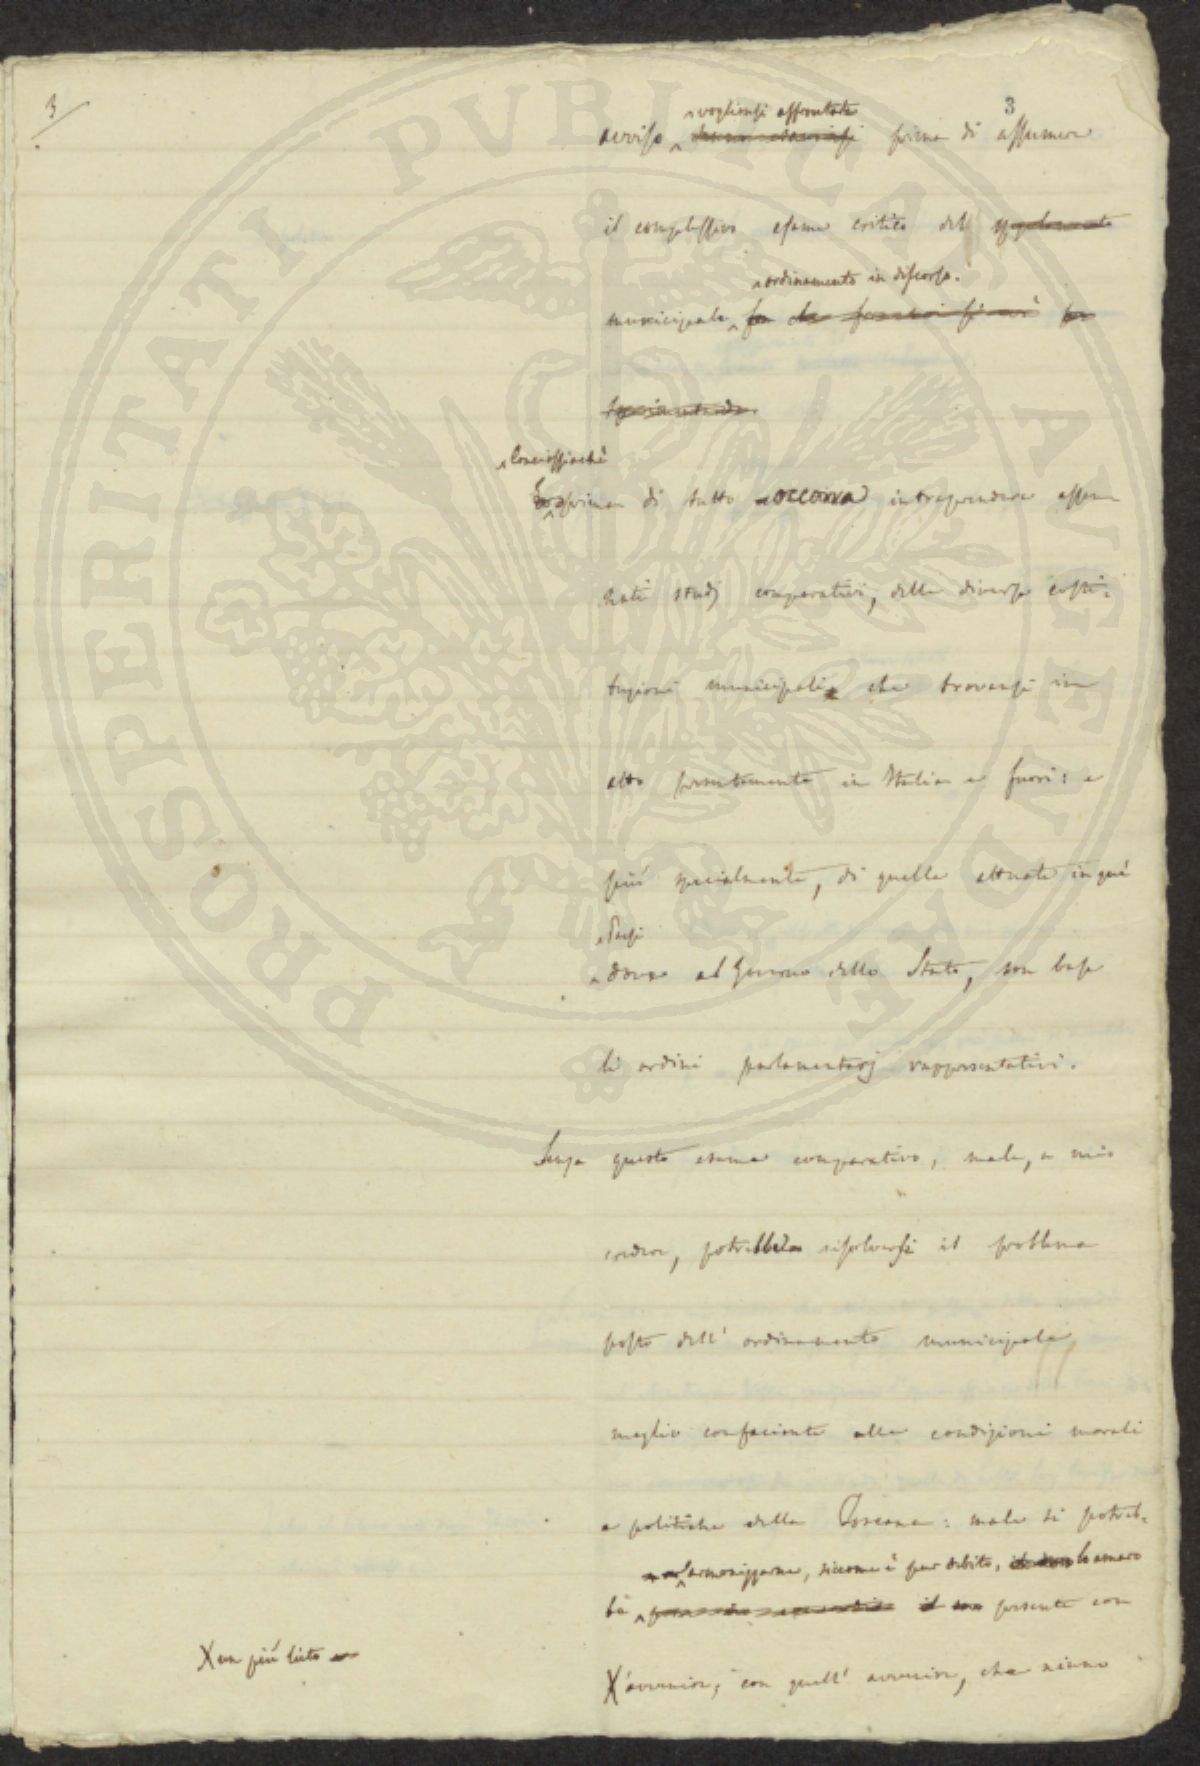 3
3
vogliensi affrontate
avviso prima di assumere
il complessivo esame critico del regolamento
ordinamento in discorso.
municipale
Conciossiachè
prima di tutto occorra intraprendere assen
nati studj comparativi, delle diverse costi=
tuzioni municipali che trovansi in
atto presentemente in Italia e fuori: e
più specialmente, di quelle attuate in que'
Paesi
dove al Governo dello Stato, son base
li ordini parlamentarj rappresentativi.
Senza questo esame comparativo, male, a mio
credere, potrebbe risolversi il problema
posto dell' ordinamento municipale
meglio confaciente alle condizioni morali
e politiche della Toscana: male si potreb=
armonizzarne, siccome è pur debito, lo amaro
be presente con
X un più lieto
X avvenire; con quell' avvenire, che niuno
PROSPERITATI PVBLICAE AVGENDAE